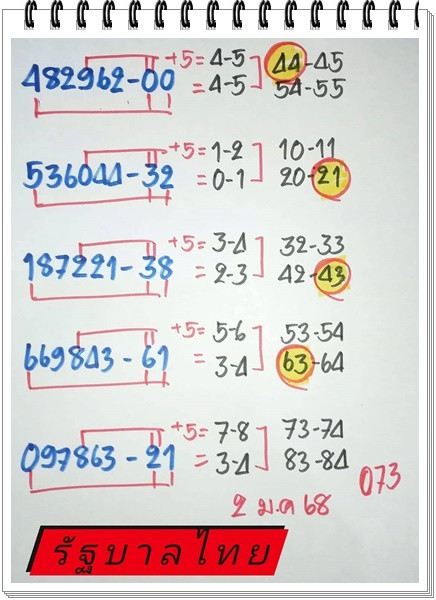 +5 = 4-5 44-45
482962-00 = 4-5 54-55
+5 = 1-2 10-11
536044-32 = 0-1 20-21
+5 = 3-4 32-33
187221-38 = 2-3 42-43
+5 = 5-6 53-54
669843-61 = 3-4 63-64
+5 = 7-8 73-74
097863-21 = 3-4 83-84
073
2 ม.ค 68
รัฐบาลไทย